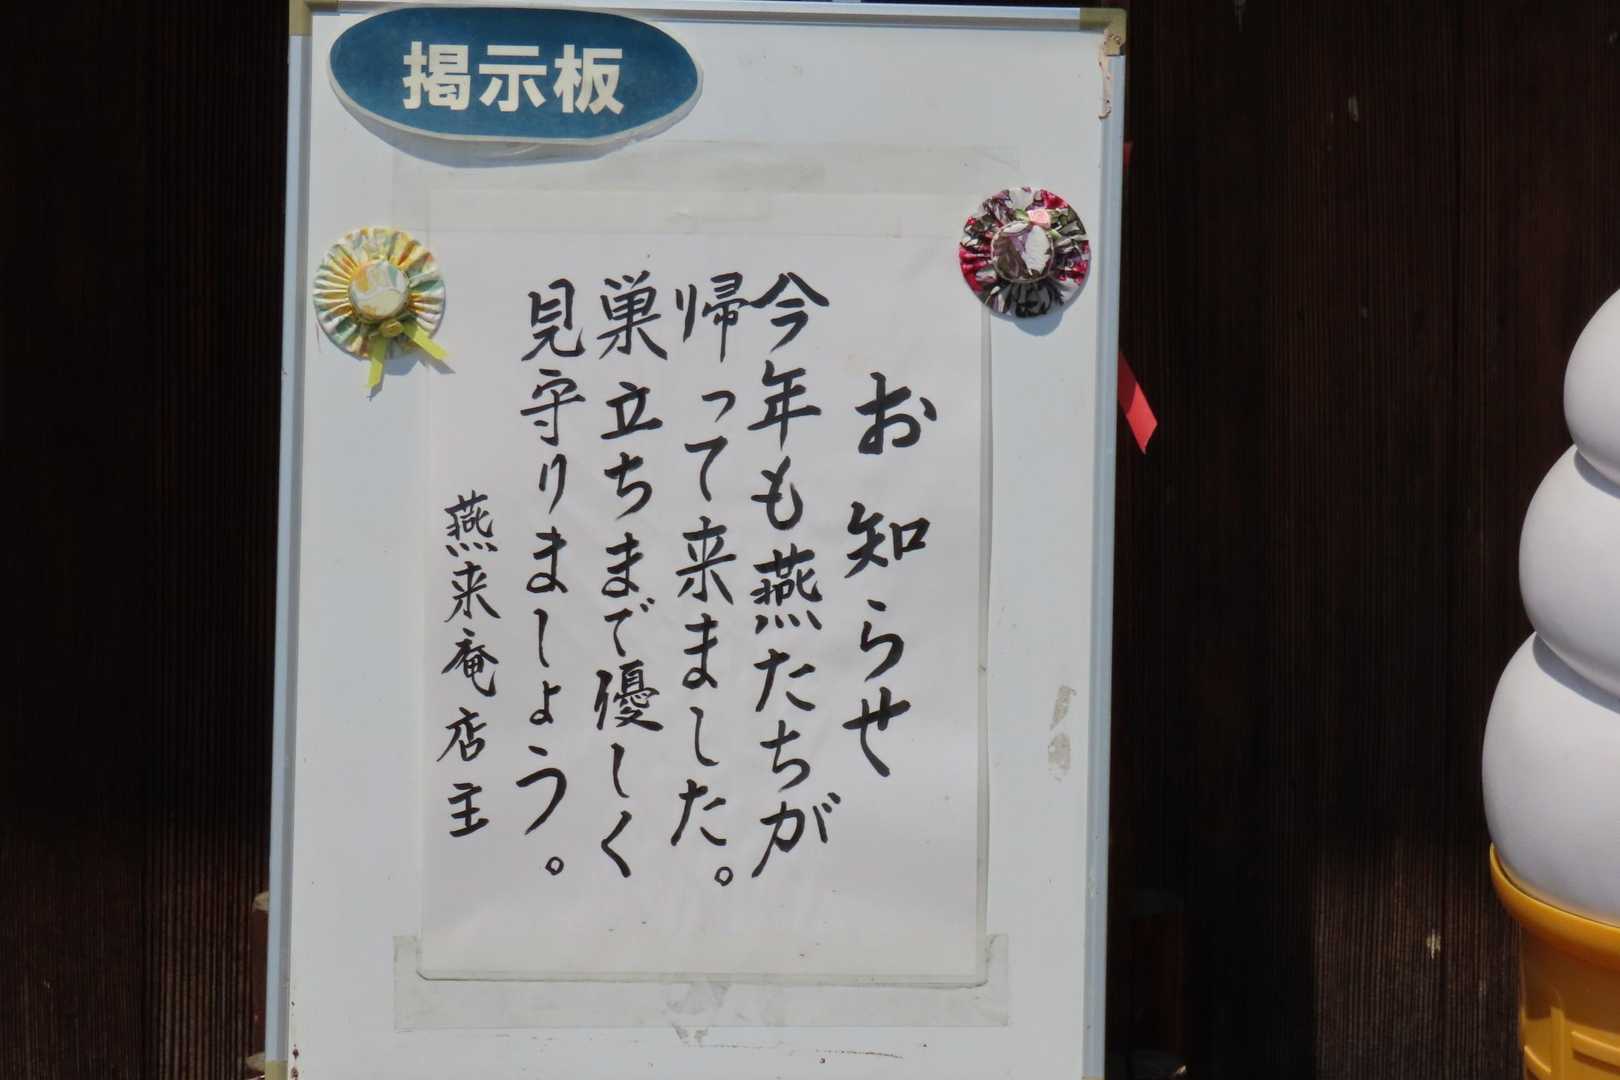 掲示板
お知らせ
今年も燕たちが
帰って来ました。
巣立ちまで優しく
見守りましょう。
燕来庵店主